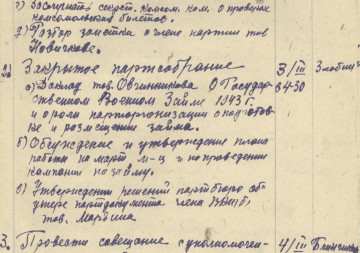 г) Заслушать секрет. комсом. ком. о проверке
комсомольских билетов.
д) Разбор заметки о члене партии тов
Новичкове.
2) Закрытое партсобрание 3/III Злобин
а) Доклад тов. Овчинникова О Государ- 8430
ственном Военном Займе 1943 г.
и о роли парторганизации в подготов-
ке и размещении займа.
б) Обсуждение и утверждение плана
работы на март м-ц и по проведению
кампании по займу.
в) Утверждении решений партбюро об
утере партдокумента члена ВКП(б)
тов.
3. Провести совещание с уполномочен- 4/III